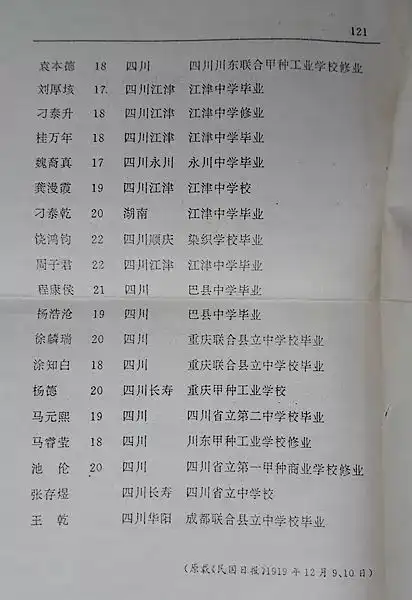 121
袁本德 18 四川 四川川东联合甲种工业学校修业
刘厚垓 17 四川江津 江津中学毕业
刁泰升 18 四川江津 江津中学修业
桂万年 18 四川江津 江津中学毕业
魏裔真 17 四川永川 永川中学毕业
龚漫霞 19 四川江津 江津中学校
刁泰乾 20 湖南 江津中学毕业
饶鸿钧 22 四川顺庆 染织学校毕业
周子君 22 四川江津 江津中学毕业
程康侯 21 四川 巴县中学毕业
杨浩沧 19 四川 巴县中学毕业
徐麟瑞 20 四川 重庆联合县立中学校毕业
涂知白 18 四川 重庆联合县立中学校毕业
杨德 20 四川长寿 重庆甲种工业学校
马元熙 19 四川 四川省立第二中学校毕业
马睿莹 18 四川 川东甲种工业学校修业
池伦 20 四川 四川省立第一甲种商业学校修业
张存煜 四川长寿 四川省立中学校
王乾 四川华阳 成都联合县立中学校毕业
(原载《民国日报》1919年12月9、10日)